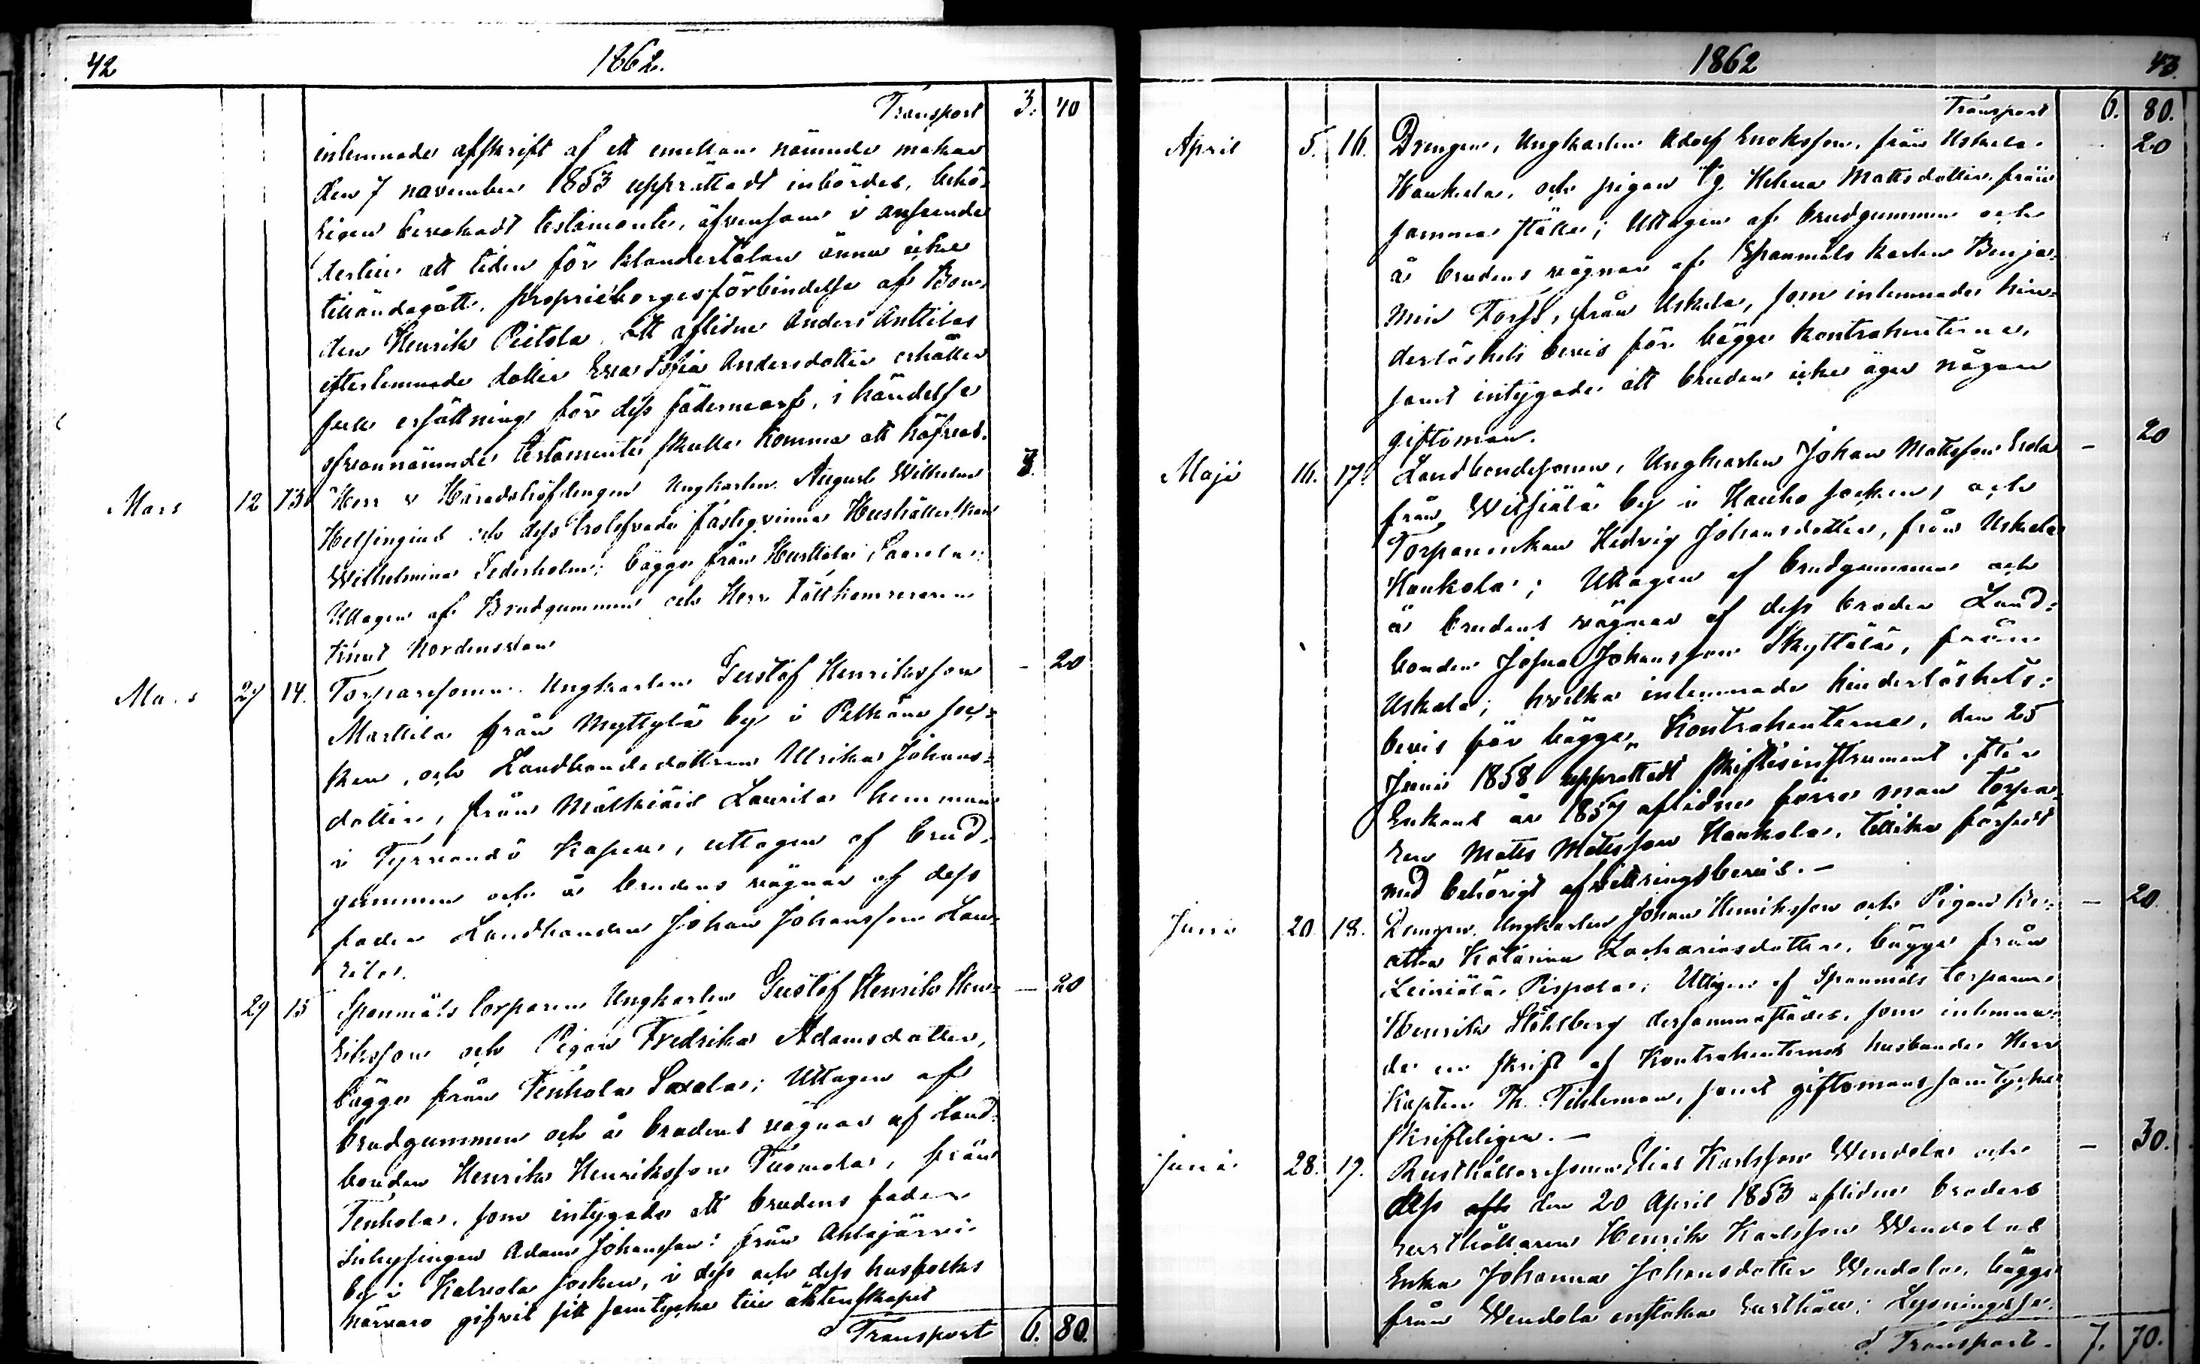 42
1862.
Transport 3. 40
inlemnade afskrift af ett emellan nämnde makar
den 7 november 1853 upprättadt inbördes, behö-
rigen bevakadt testamente, äfvensom i anseende
dertill att tiden för klandertalan ännu icke
tilländagått, proprieborgesförbindelse af Bon-
den Henrik Pietola att aflidne Anders Anttilas
efterlemnade dotter Eva Sofia Andersdotter erhåller
full ersättning för dess fädernearf, i händelse
ofvannämnde testamente skulle komma att häfvas.
Mars 12 13 Herr v Häradshöfdingen Ungkarlen August Wilhelm 3.
Helsingius och dess trolofvade fästeqvinna Hushållerskan
Wilhelmina Sederholm; bägge från Hurttala Saarela;
Uttagen af Brudgummen och Herr Fältkamreraren
Knut Nordenswan
Mars 29 14. Torparesonen Ungkarlen Gustaf Henriksson — 20
Marttila från Myttylä by i Pelkäne soc-
ken, och Landbondedottren Ulrika Johans-
dotter, från Mälkiäis Laurila hemman
i Tyrvändö Kapell, uttagen af brud-
gummen och å brudens vägnar af dess
fader Landbonden Johan Johansson Lau-
rila.
29 15 Spanmåls torparen Ungkarlen Gustaf Henrik Hen- — 20
riksson och Pigan Fredrika Adamsdotter,
bägge från Tenhola Saxala; Uttagen af
brudgummen och å brudens vägnar af Land-
bonden Henrik Henriksson Tuomola, från
Tenhola, som intygade att brudens fader
Inhysingen Adam Johansson från Ahlajärvi
by i Kalvola socken, i dess och dess husfolks
närvaro gifvit sitt samtycke till äktenskapet
Transport 6. 80.
1862
43.
Transport 6. 80.
April 5. 16. Drengen, Ungkarlen Adolf Enoksson, från Uskela 20
Hankala, och pigan Helena Mattsdotter, från
samma ställe; Uttagen af brudgummen och
å brudens vägnar af Spanmåls karlen Benja-
min Forss, från Uskela, som inlemnade hin-
derlöshets bevis för bägge kontrahenterne,
samt intygade att bruden icke äger någon
giftoman.
Maji 16. 17. Landbondesonen, Ungkarlen Johan Mattsson Erola — 20
från Wilsiälä by i Hauho socken, och
Torpareenkan Hedvig Johansdotter, från Uskela
Hankala; Uttagen af brudgummen och
å brudens vägnar af dess broder Land-
bonden Josua Johansson Skyttälä, från
Uskela; hvilka inlemnade hinderlöshets-
bevis för bägge Kontrahenterna, den 25
Junii 1858 upprättadt skiftesinstrument efter
Enkans år 1857 aflidne förre man torpa-
ren Matts Mattsson Hankala, tillika försedt
med behörigt afvittringsbevis. —
Junii 20 18. Drengen, Ungkarlen Johan Henriksson och Pigan Be- — 20.
atta Katarina Zachariasdotter, bägge från
Leiniälä Pispala; Uttagen af Spanmåls torparen
Henrik Ståhlberg dersammastädes, som inlemna-
de en skrift af Kontrahenternes husbonde Herr
Kapten Th. Tihleman, samt giftomans samtycke
skrifteligen. —
Junii 28. 19. Rusthållaresonen Elias Karlsson Wendola och — 30.
dess den 20 April 1853 aflidne broders
rusthållaren Henrik Karlsson Wendolas
Enka Johanna Johansdotter Wendola, bägge
från Wendola rusthåll; Lysningsse-
Transport. 7. 70.